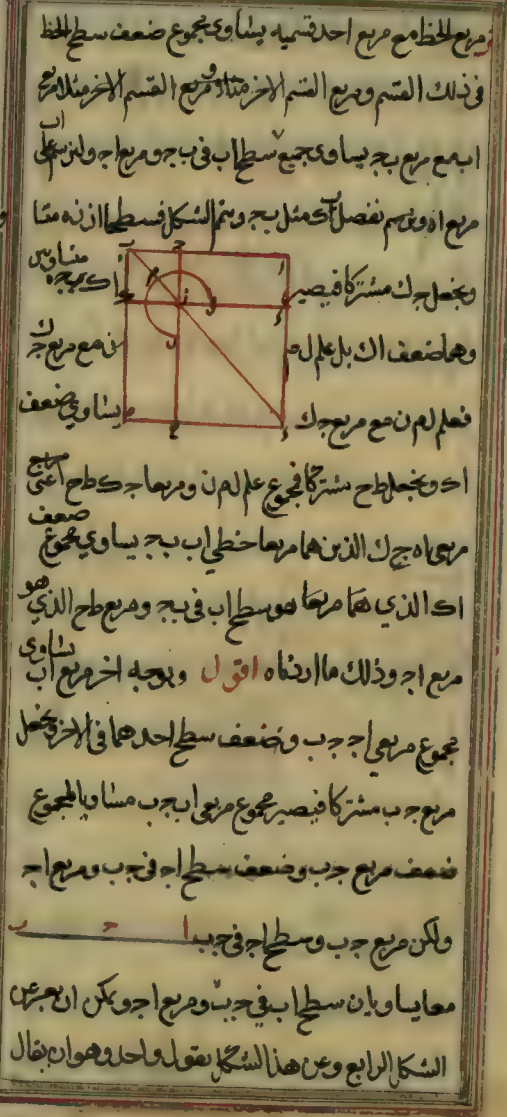 ز مربع الخط مع مربع احد قسميه يساوى مجموع ضعف سطح الخط
فى ذلك القسم ومربع القسم الاخر مثلا مربع
اب مع مربع ب ج يساوى جميع سطح اب فى ب ج ومربع ا ج ولنرسم على اب
مربع ا ه ونرسم نفصل ب ك مثل ب ج ويتم الشكل فسطحا ا ز ز ه متسا
متساويين
ونجعل ج ك مشتركا فيصير ا ك ج ه
وهما ضعف ا ك بل علم ل م ن مع مربع ج ك
فعلم ل م ن مع مربع ج ك يساوي ضعف
ا ك ونجعل ط ح مشتركا فمجموع علم ل م ن ومربعا ج ك ط ح اعنى مربع
مربعى ا ه ج ك الذين هما مربعا خطي اب ب ج يساوي مجموع ضعف
ا ك الذي هو سطح اب فى ب ج ومربع ط ح الذي هو
مربع ا ج وذلك ما اردناه اقول وبوجه اخر مربع اب يساوى
مجموع مربعي ا ج ج ب وضعف سطح احدهما فى الاخر ونجعل
مربع ج ب مشتركا فيصير مجموع مربعى اب ج ب مساويا لمجموع
ضعف مربع ج ب وضعف سطح ا ج فى ج ب ومربع ا ج
ولكن مربع ج ب وسطح ا ج فى ج ب
ا ج ب
معا يساويان سطح اب فى ج ب ومربع ا ج ويمكن ان يعبر عن
الشكل الرابع وعن هذا الشكل بقول واحد وهو ان يقال